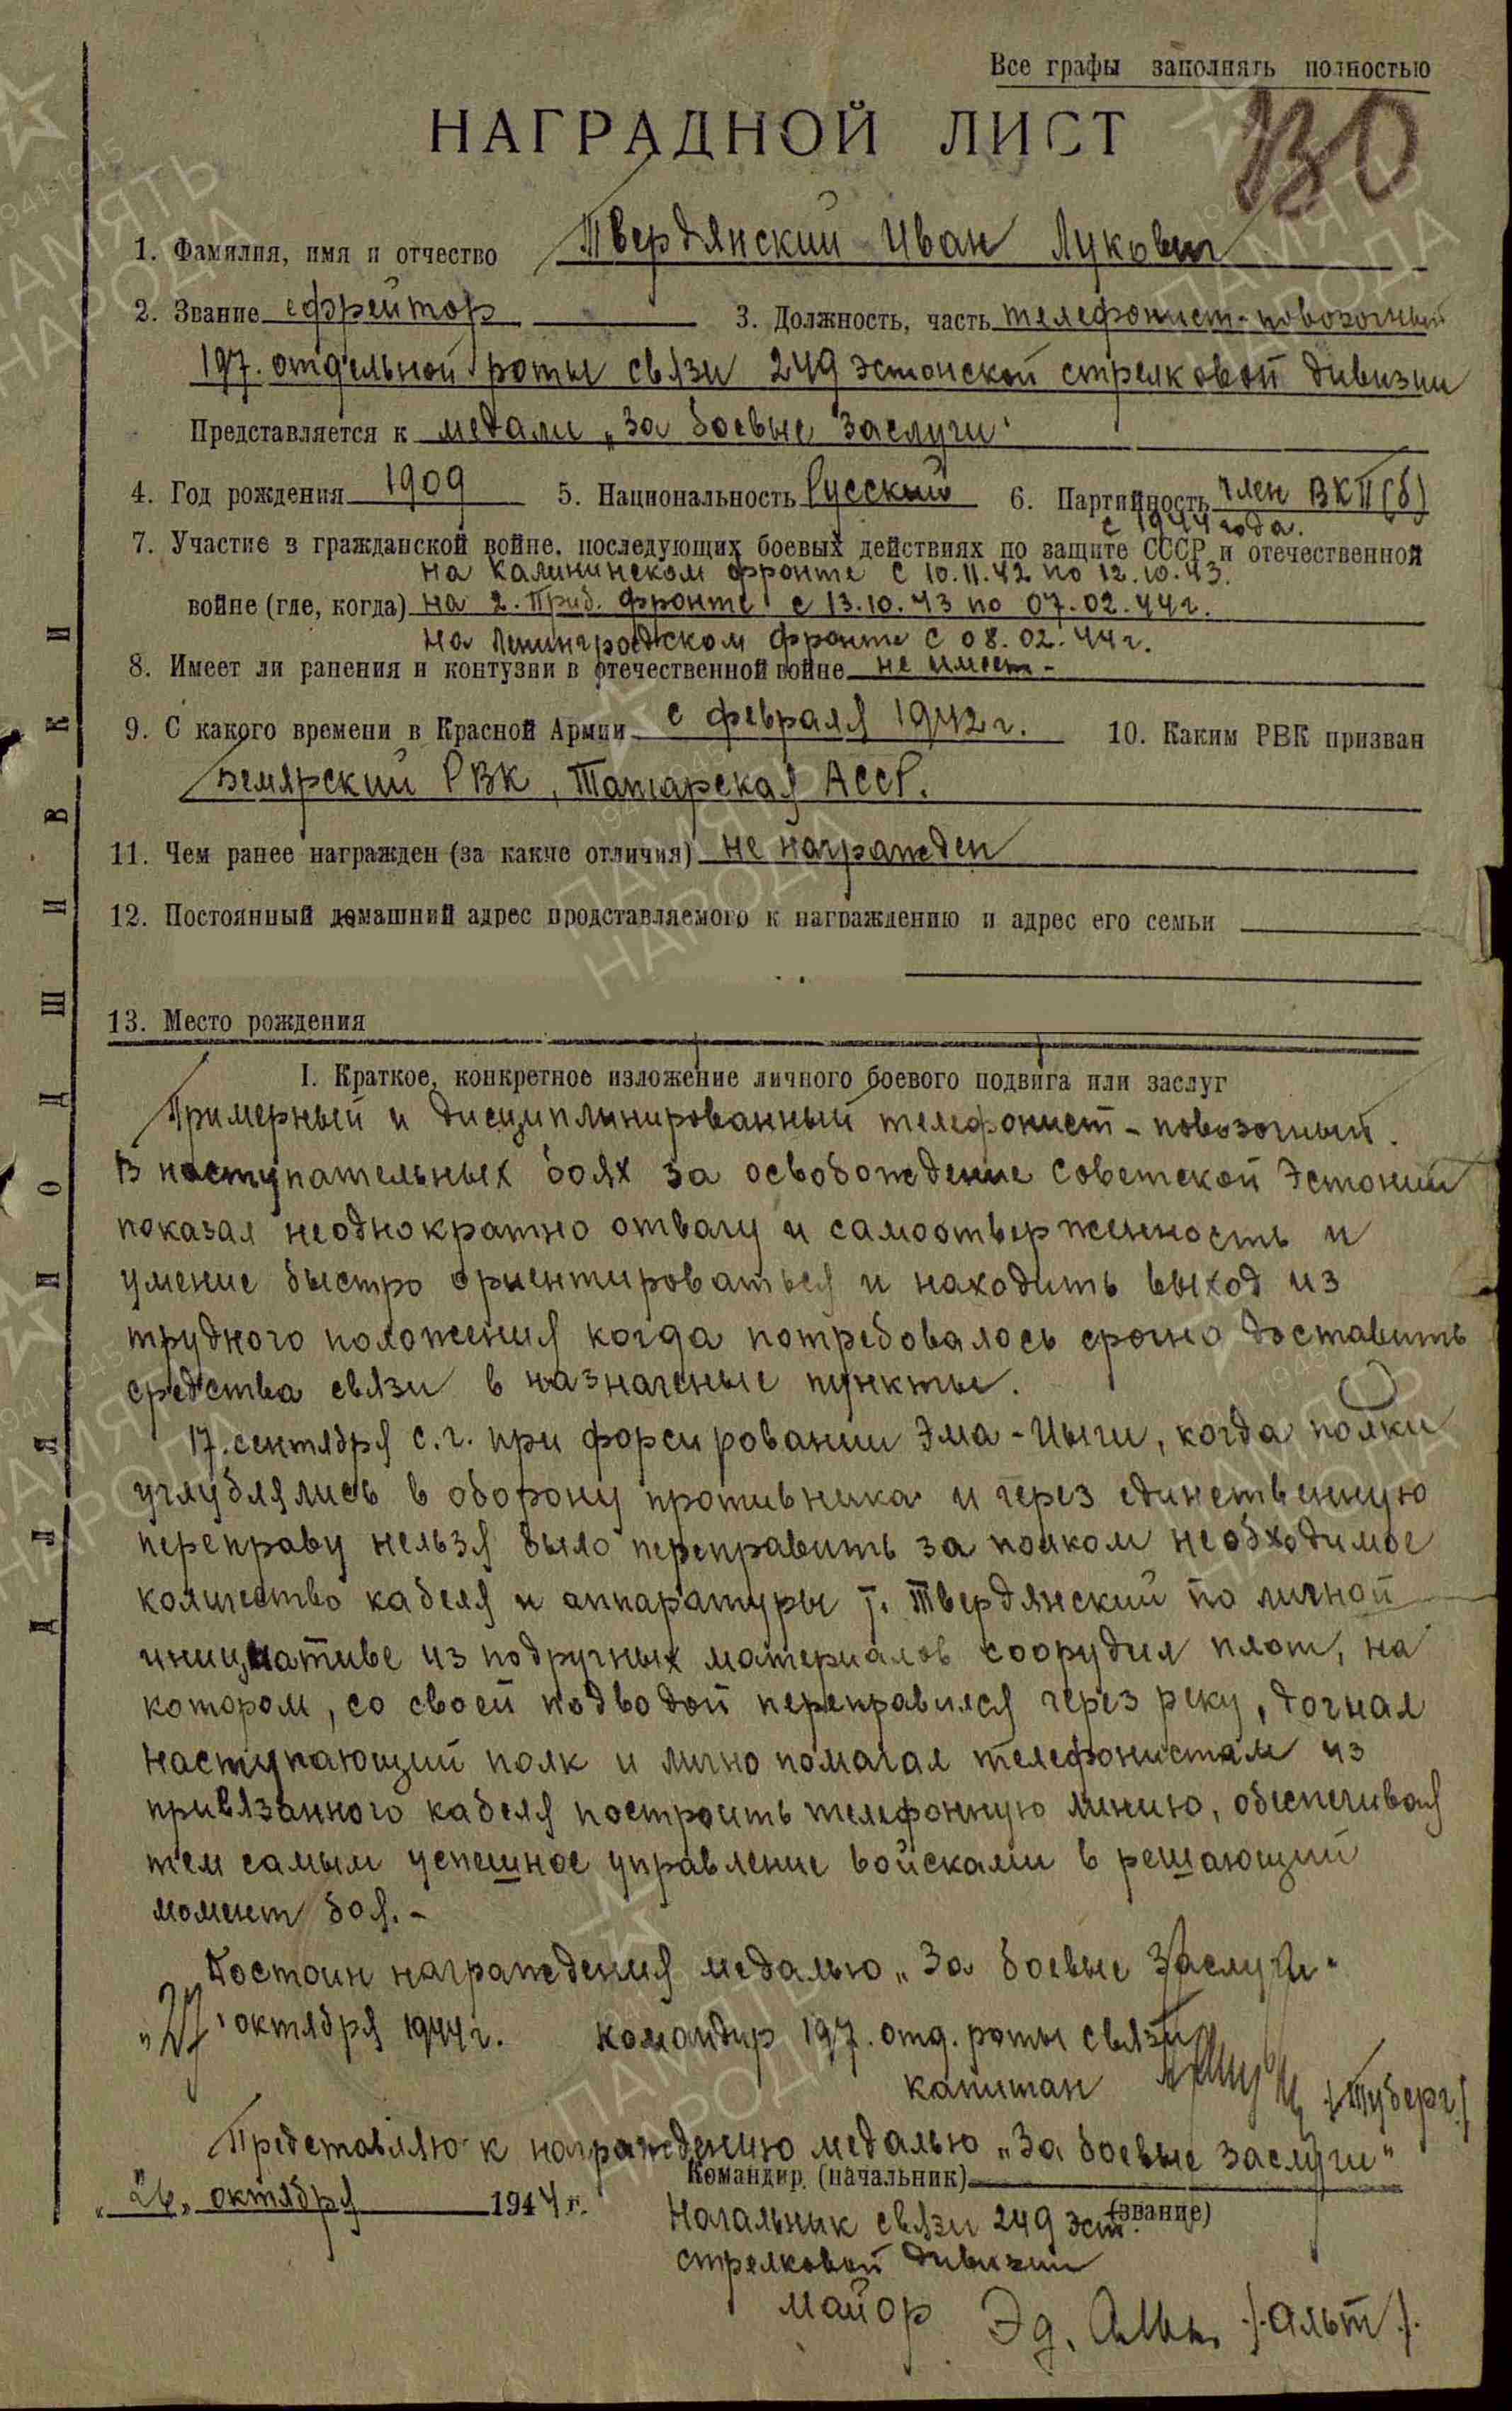 Все графы заполнять полностью
130
НАГРАДНОЙ ЛИСТ
1. Фамилия, имя и отчество Твердянский Иван Лукович
2. Звание ефрейтор 3. Должность, часть телефонист-повозочный
197. отдельной роты связи 249 эстонской стрелковой дивизии
Представляется к медали „За боевые заслуги"
4. Год рождения 1909 5. Национальность Русский 6. Партийность член ВКП(б)
с 1944 года.
7. Участие в гражданской войне, последующих боевых действиях по защите СССР и отечественной
на Калининском фронте с 10.11.42 по 12.10.43.
войне (где, когда) на 2. Приб. фронте с 13.10.43 по 07.02.44г.
на Ленинградском фронте с 08.02.44г.
8. Имеет ли ранения и контузии в отечественной войне не имеет-
9. С какого времени в Красной Армии с февраля 1942г. 10. Каким РВК призван
РВК, Татарская АССР.
11. Чем ранее награжден (за какие отличия) не награжден
12. Постоянный домашний адрес представляемого к награждению и адрес его семьи
13. Место рождения
I. Краткое, конкретное изложение личного боевого подвига или заслуг
Примерный и дисциплинированный телефонист-повозочный.
В наступательных боях за освобождение Советской Эстонии
показал неоднократно отвагу и самоотверженность и
умение быстро ориентироваться и находить выход из
трудного положения когда потребовалось срочно доставить
средства связи в назначеные пункты.
17. сентября с.г. при форсировании Эма-Иыги, когда полки
углублялись в оборону противника и через единственную
переправу нельзя было переправить за полком необходимое
количество кабеля и аппаратуры т. Твердянский по личной
инициативе из подручных материалов соорудил плот, на
котором, со своей подводой переправился через реку, догнал
наступающий полк и лично помогал телефонистам из
привязанного кабеля построить телефонную линию, обеспечивая
тем самым успешное управление войсками в решающий
момент боя.-
Достоин награждения медалью „За боевые заслуги"
„27" октября 1944г. командир 197. отд. роты связи
капитан /Туберг/
Представляю к награждению медалью „За боевые заслуги"
Командир (начальник)
„26" октября 1944 г.
(звание)
Начальник связи 249 эст.
стрелковой дивизии
майор Эд. Альт /Альт/.
ДЛЯ ПОДШИВКИ
ПАМЯТЬ НАРОДА
1941-1945